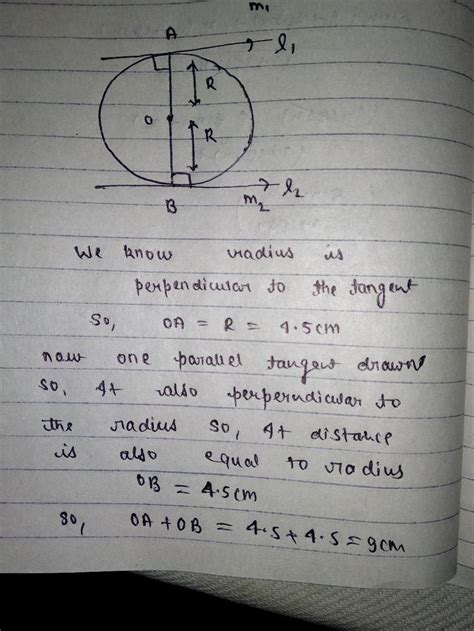 m1
A
l1
R
O
R
l2
m2
B
We know radius is
perpendicular to the tangent
So, OA = R = 4.5cm
now one parallel tangent drawn
so, It also perpendicular to
the radius so, It distance
is also equal to radius
OB = 4.5cm
so, OA + OB = 4.5 + 4.5 = 9cm